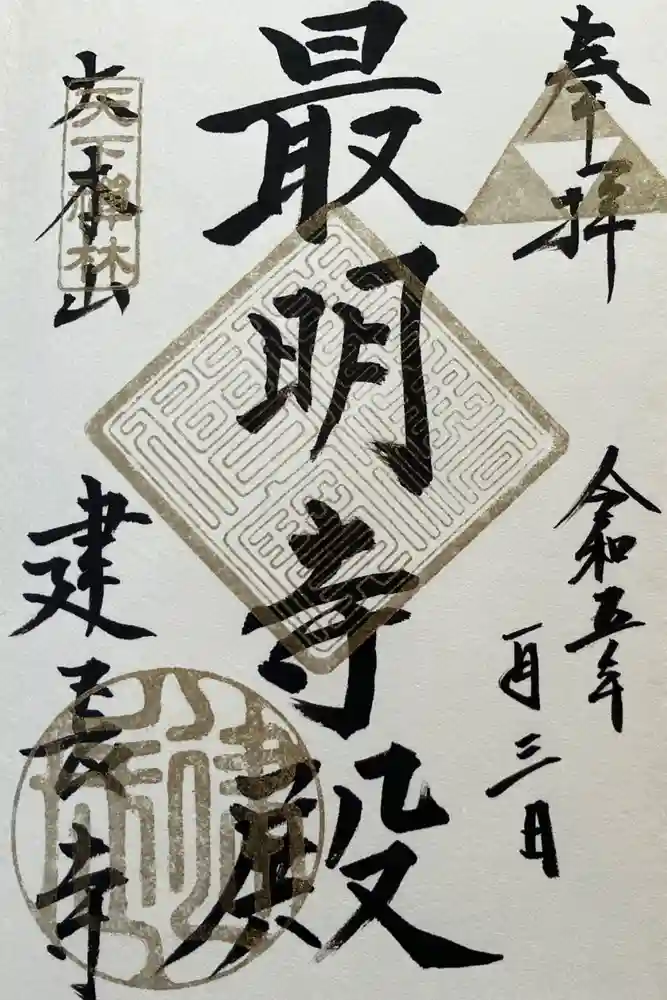 奉拝
令和五年
一月三日
最明寺殿
大本山
天下禪林
建長寺